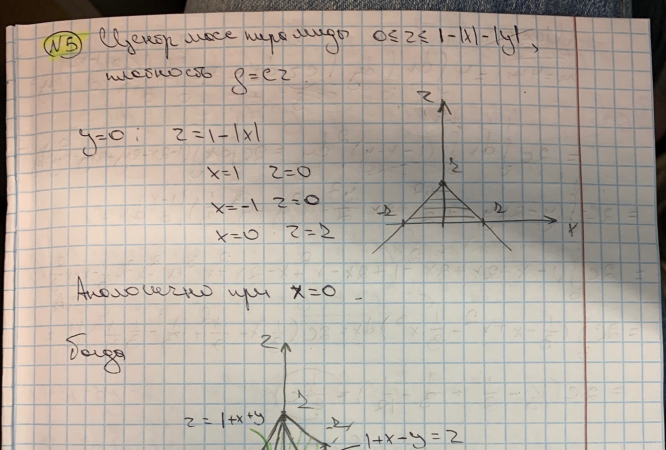 №5 Центр масс пирамиды 0≤z≤1-|x|-|y|,
плотность ρ=cz.
z
y=0: z=1-|x|
x=1 z=0
x=-1 z=0
x=0 z=1
1
-1 1
x
Аналогично при x=0.
Тогда
z
1
z=1+x+y
-1
1+x-y=z